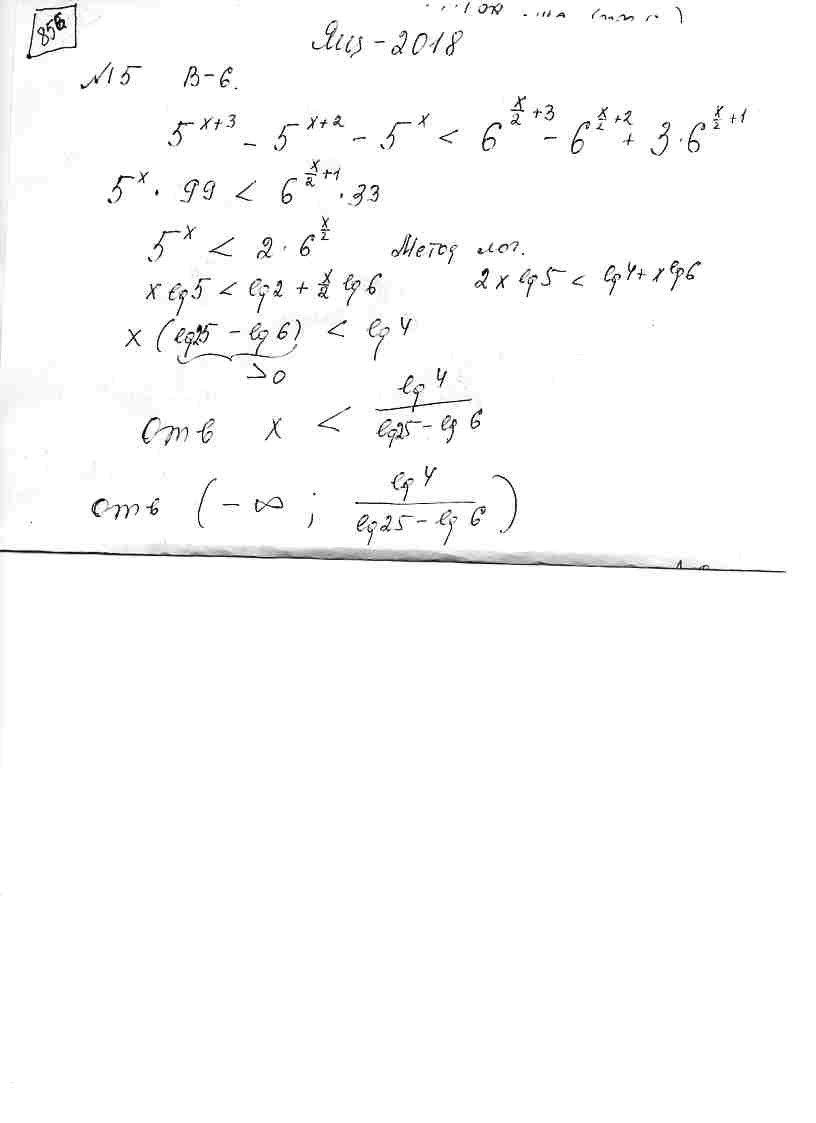 85б
Ящ-2018
№15 В-6.
5^{x+3} - 5^{x+2} - 5^x < 6^{\frac{x}{2}+3} - 6^{\frac{x}{2}+2} + 3·6^{\frac{x}{2}+1}
5^x · 99 < 6^{\frac{x}{2}+1} · 33
5^x < 2 · 6^{\frac{x}{2}} Метод лог.
x lg 5 < lg 2 + \frac{x}{2} lg 6 2x lg 5 < lg 4 + x lg 6
x (lg 25 - lg 6) < lg 4
> 0
Отв x < \frac{lg 4}{lg 25 - lg 6}
Отв (-∞ ; \frac{lg 4}{lg 25 - lg 6})